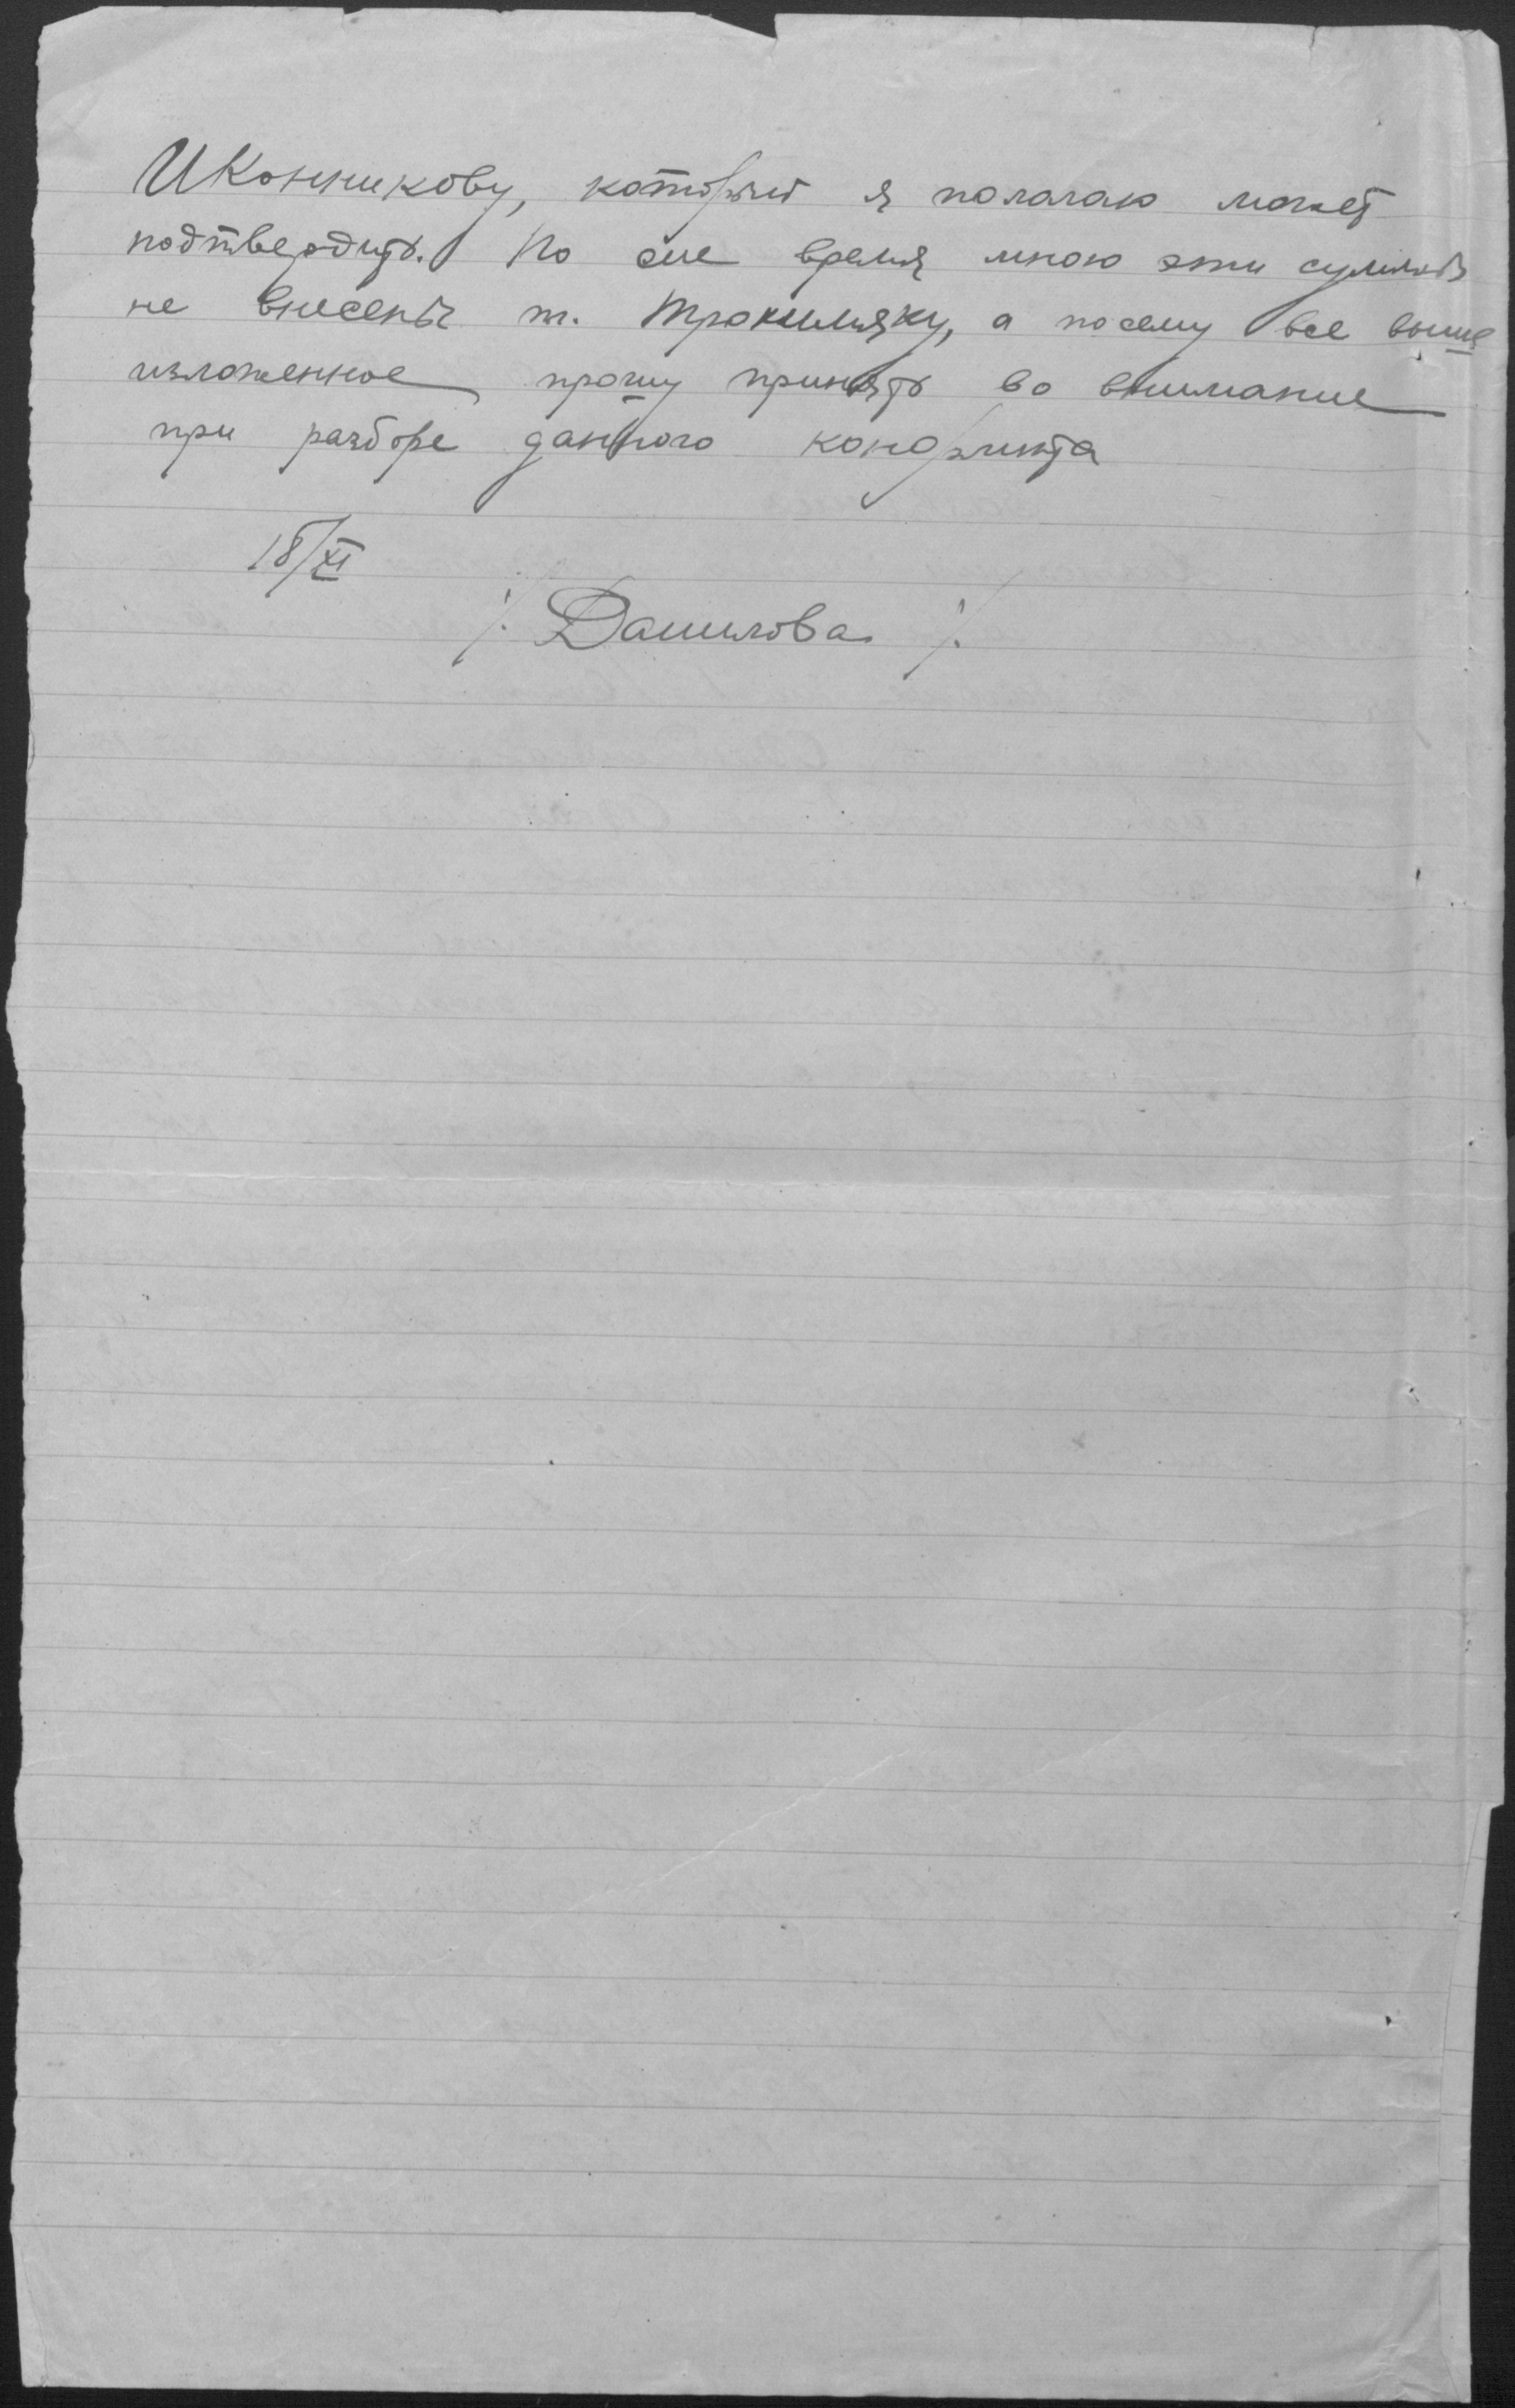 Иконникову, который я полагаю может
подтвердить. По сие время мною эти суммы
не внесены т. а посему все выше
изложенное прошу принять во внимание
при разборе данного конфликта
18/XI
/. Данилова /.